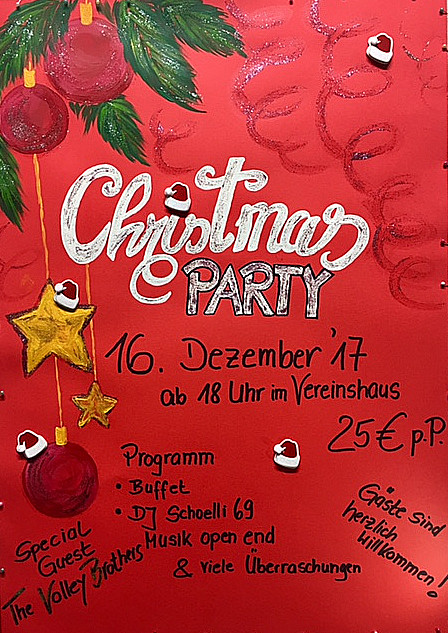 Christmas
PARTY
16. Dezember '17
ab 18 Uhr im Vereinshaus
25€ p.P.
Programm
• Buffet
• DJ Schoelli 69
Musik open end
& viele Überraschungen
Special
Guest
The Volley Brothers
Gäste sind
herzlich
willkommen!